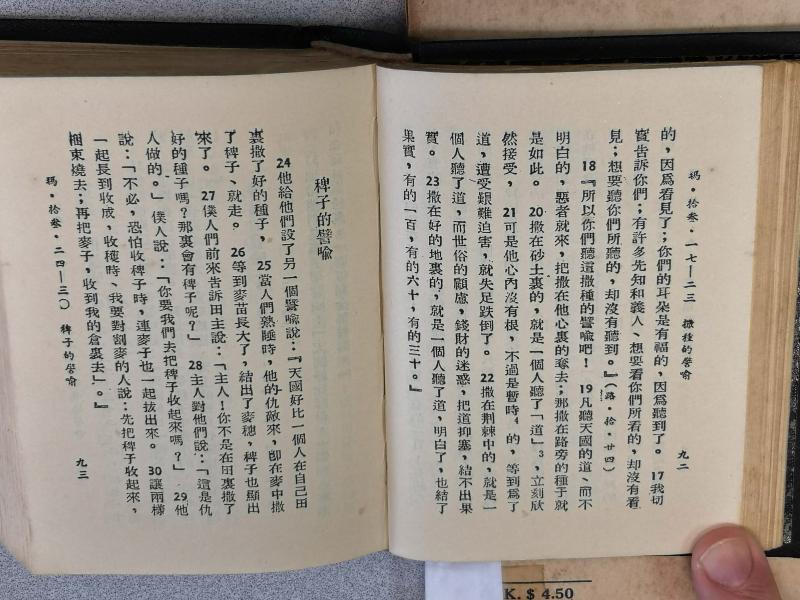 瑪・拾叁・一七—二三 撒種的譬喻 九二
的，因爲看見了；你們的耳朵是有福的，因爲聽到了。17我切
實告訴你們；有許多先知和義人、想要看你們所看的，却沒有看
見；想要聽你們所聽的，却沒有聽到。』（路・拾・廿四）
18『所以你們聽這撒種的譬喻吧！ 19凡聽天國的道、而不
明白的，惡者就來，把撒在他心裏的奪去；那撒在路旁的種子就
是如此。 20撒在砂土裏的，就是一個人聽了「道」3，立刻欣
然接受， 21可是他心內沒有根，不過是暫時4的，等到爲了
道，遭受艱難迫害，就失足跌倒了。 22撒在荆棘中的，就是一
個人聽了道，而世俗的顧慮，錢財的迷惑，把道抑塞，結不出果
實。 23撒在好的地裏的，就是一個人聽了道，明白了，也結了
果實，有的一百，有的六十，有的三十。』
稗子的譬喻
24他給他們設了另一個譬喻說：『天國好比一個人在自己田
裏撒了好的種子， 25當人們熟睡時，他的仇敵來，卽在麥中撒
了稗子、就走。 26等到麥苗長大了，結出了麥穗，稗子也顯出
來了。 27僕人們前來告訴田主說：「主人！你不是在田裏撒了
好的種子嗎？那裏會有稗子呢？」 28主人對他們說：「這是仇
人做的。」僕人說：「你要我們去把稗子收起來嗎？」 29他
說：「不必，恐怕收稗子時，連麥子也一起拔出來。 30讓兩樣
一起長到收成，收穫時、我要對割麥的人說：先把稗子收起來，
捆束燒去；再把麥子，收到我的倉裏去」。』
瑪・拾叁・二四—三〇 稗子的譬喻 九三
K. $ 4.50